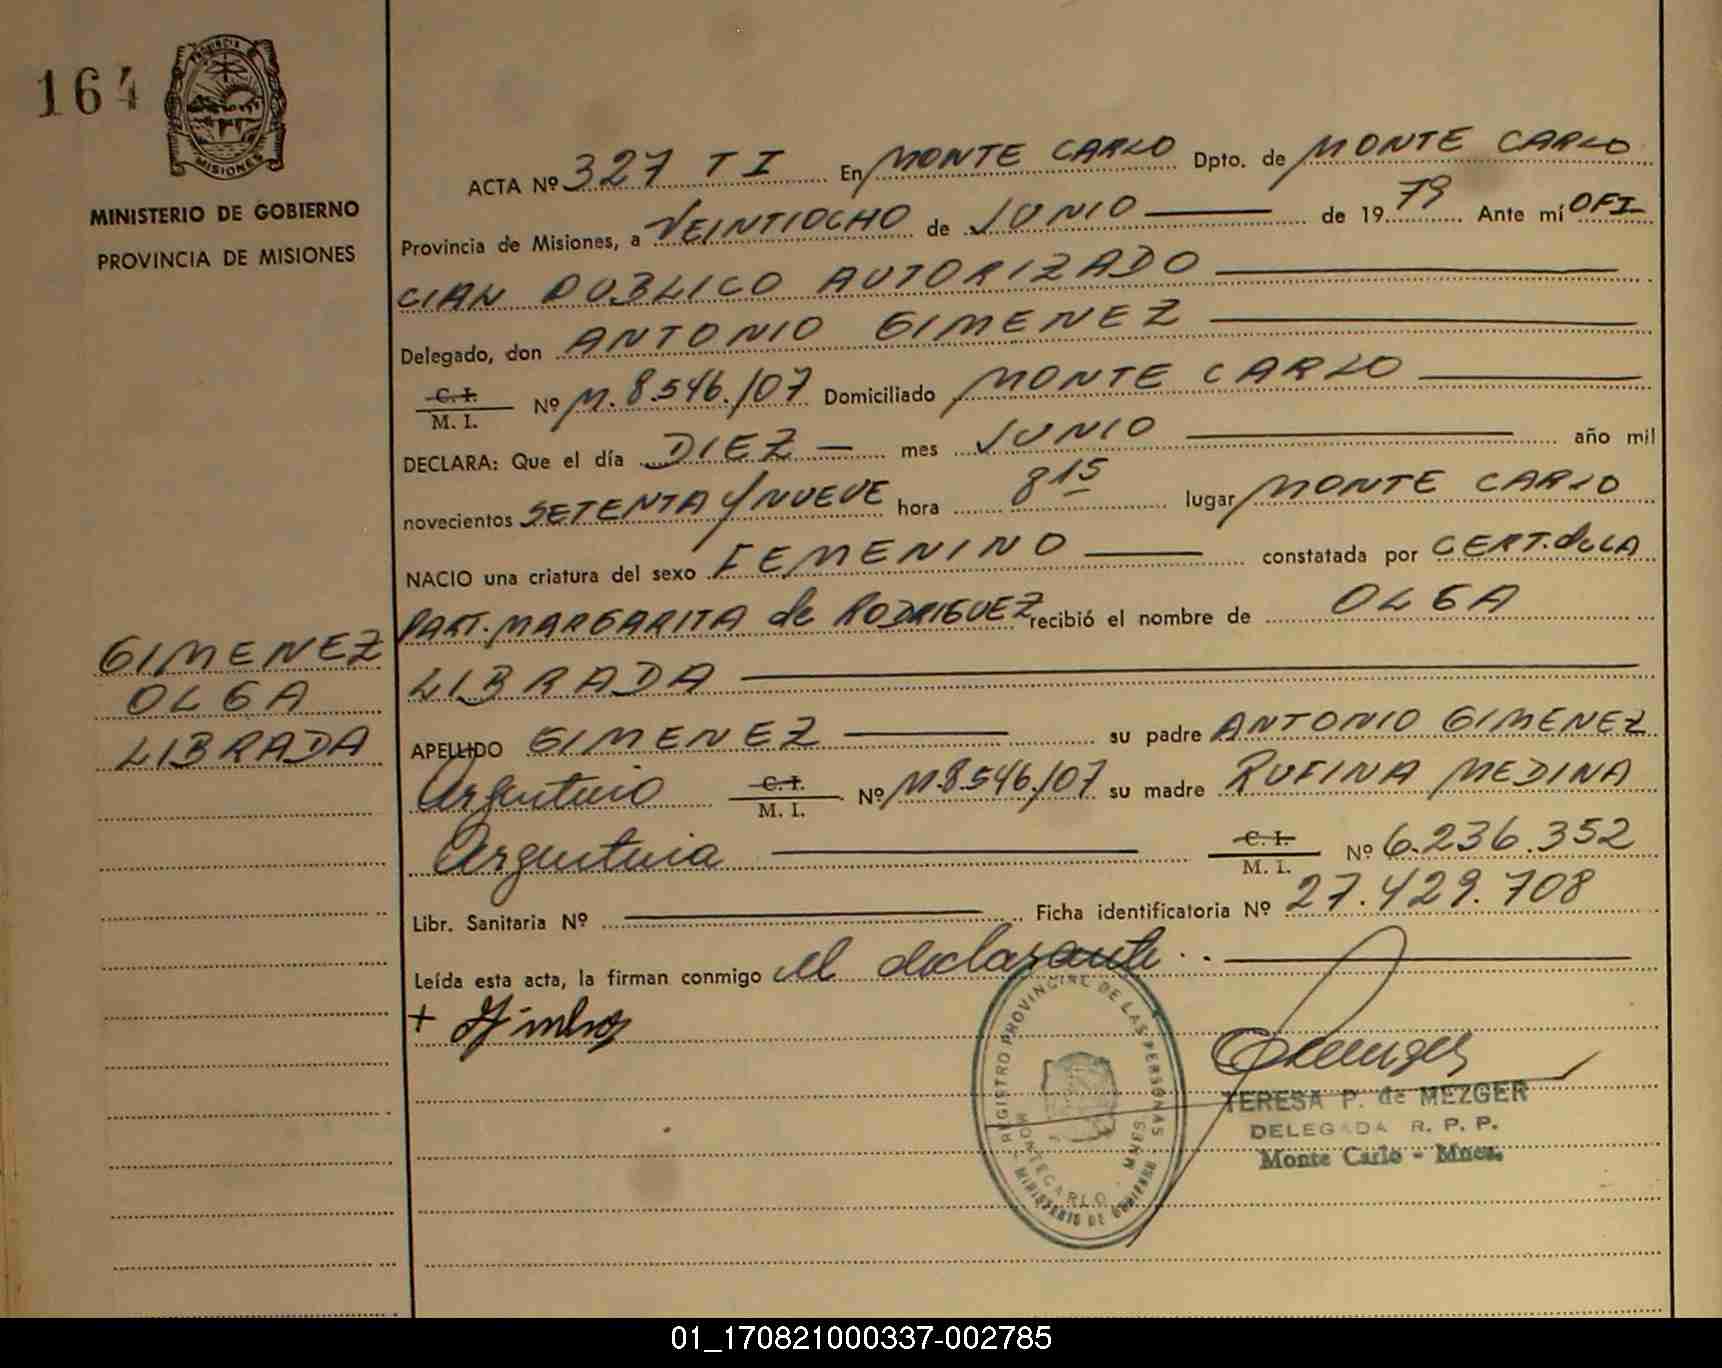 164
PROVINCIA DE
MISIONES
MINISTERIO DE GOBIERNO
PROVINCIA DE MISIONES
GIMENEZ
OLGA
LIBRADA
ACTA Nº 327 T I En MONTE CARLO Dpto. de MONTE CARLO
Provincia de Misiones, a VEINTIOCHO de JUNIO de 19 79 Ante mí OFI
CIAN PUBLICO AUTORIZADO
Delegado, don ANTONIO GIMENEZ
C. I. M. I. Nº M. 8.546./07 Domiciliado MONTE CARLO
DECLARA: Que el día DIEZ mes JUNIO año mil
novecientos SETENTA Y NUEVE hora 8 15 lugar MONTE CARLO
NACIO una criatura del sexo FEMENINO constatada por CERT. de LA
PART. MARGARITA de RODRIGUEZ recibió el nombre de OLGA
LIBRADA
APELLIDO GIMENEZ su padre ANTONIO GIMENEZ
Argentino C. I. M. I. Nº M.8.546./07 su madre RUFINA MEDINA
Argentina C. I. M. I. Nº 6.236.352
Libr. Sanitaria Nº Ficha identificatoria Nº 27.429.708
Leída esta acta, la firman conmigo el declarante.
REGISTRO PROVINCIAL DE LAS PERSONAS
MONTECARLO - MNES
MINISTERIO DE GOBIERNO
TERESA P. de MEZGER
DELEGADA R. P. P.
Monte Carlo - Mnes.
01_170821000337-002785